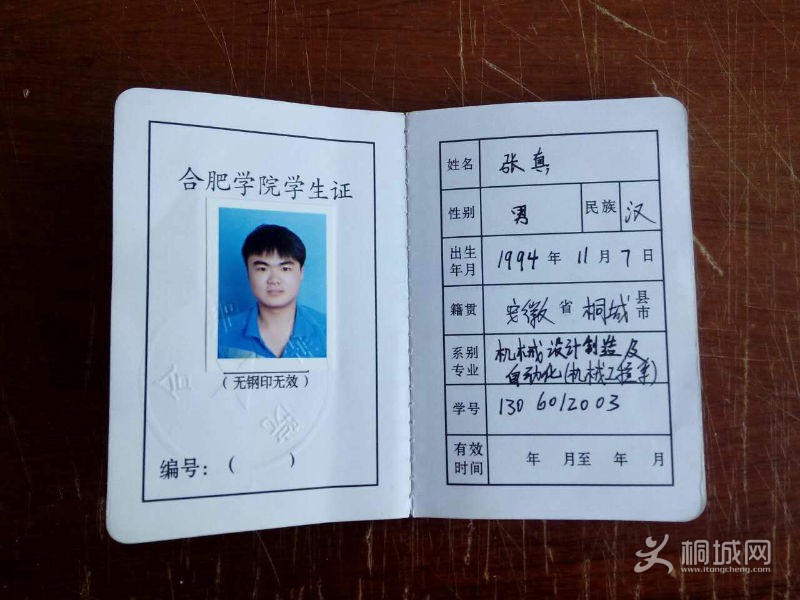 合肥学院学生证
(无钢印无效)
编号:( )
姓名 张真
性别 男 民族 汉
出生年月 1994年11月7日
籍贯 安徽省桐城县市
系别专业 机械设计制造及
自动化(机械工程系)
学号 1306012003
有效时间 年 月至 年 月
桐城网
www.itongcheng.com